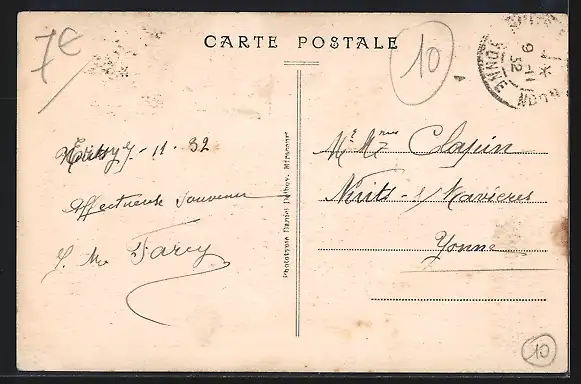 7€
CARTE POSTALE
10
YONNE
9 - 11
32
7 - 11 - 32
Affectueux souvenir
Farcy
Phototypie Daniel Delboy, Mirecourt
Mr Mme Clapin
Nuits - s/ Ravières
Yonne
10